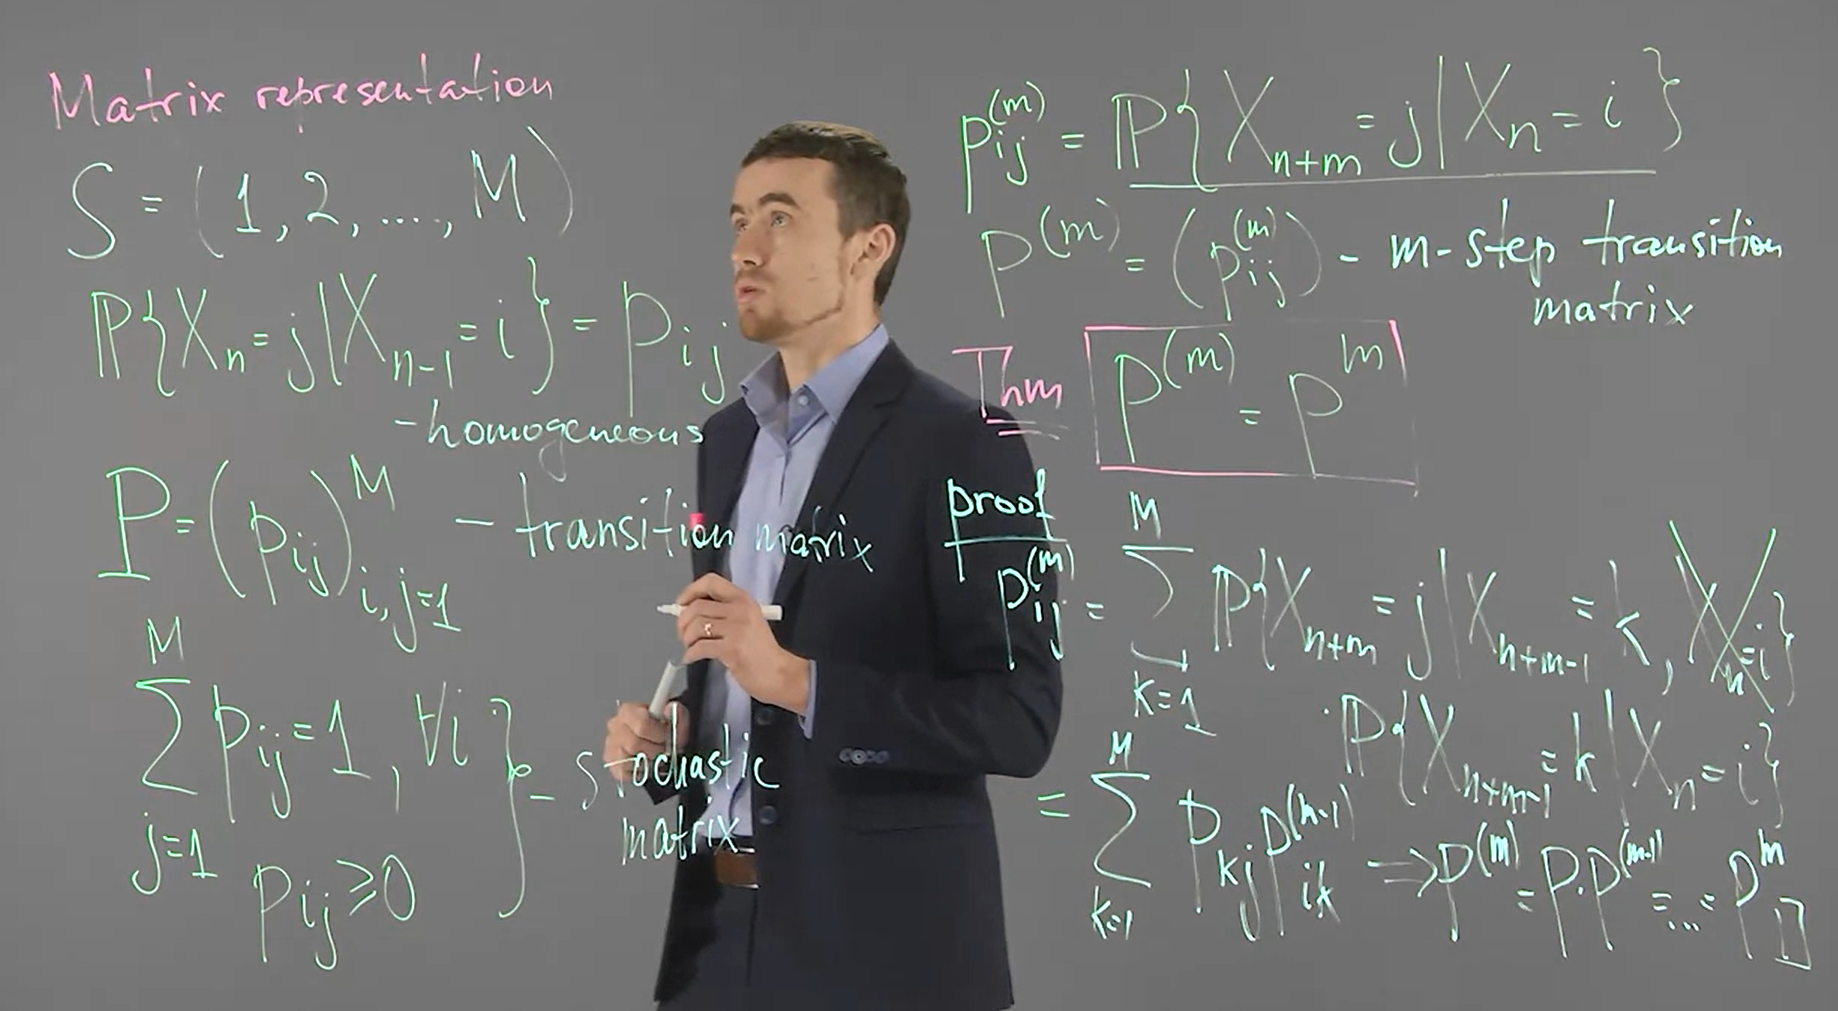 Matrix representation
S = (1, 2, ...., M)
ℙ{X_n = j | X_{n-1} = i} = p_{ij}
- homogeneous
P = (p_{ij})_{i,j=1}^M - transition matrix
∑_{j=1}^M p_{ij} = 1, ∀i
p_{ij} ≥ 0
} - stochastic
matrix
p_{ij}^{(m)} = ℙ{X_{n+m} = j | X_n = i}
P^{(m)} = (p_{ij}^{(m)}) - m-step transition
matrix
Thm P^{(m)} = P^m
proof
p_{ij}^{(m)} = ∑_{k=1}^M ℙ{X_{n+m} = j | X_{n+m-1} = k, X_n = i}
· ℙ{X_{n+m-1} = k | X_n = i}
= ∑_{k=1}^M p_{kj} p_{ik}^{(m-1)} ⇒ P^{(m)} = P·P^{(m-1)} = ... = P^m □